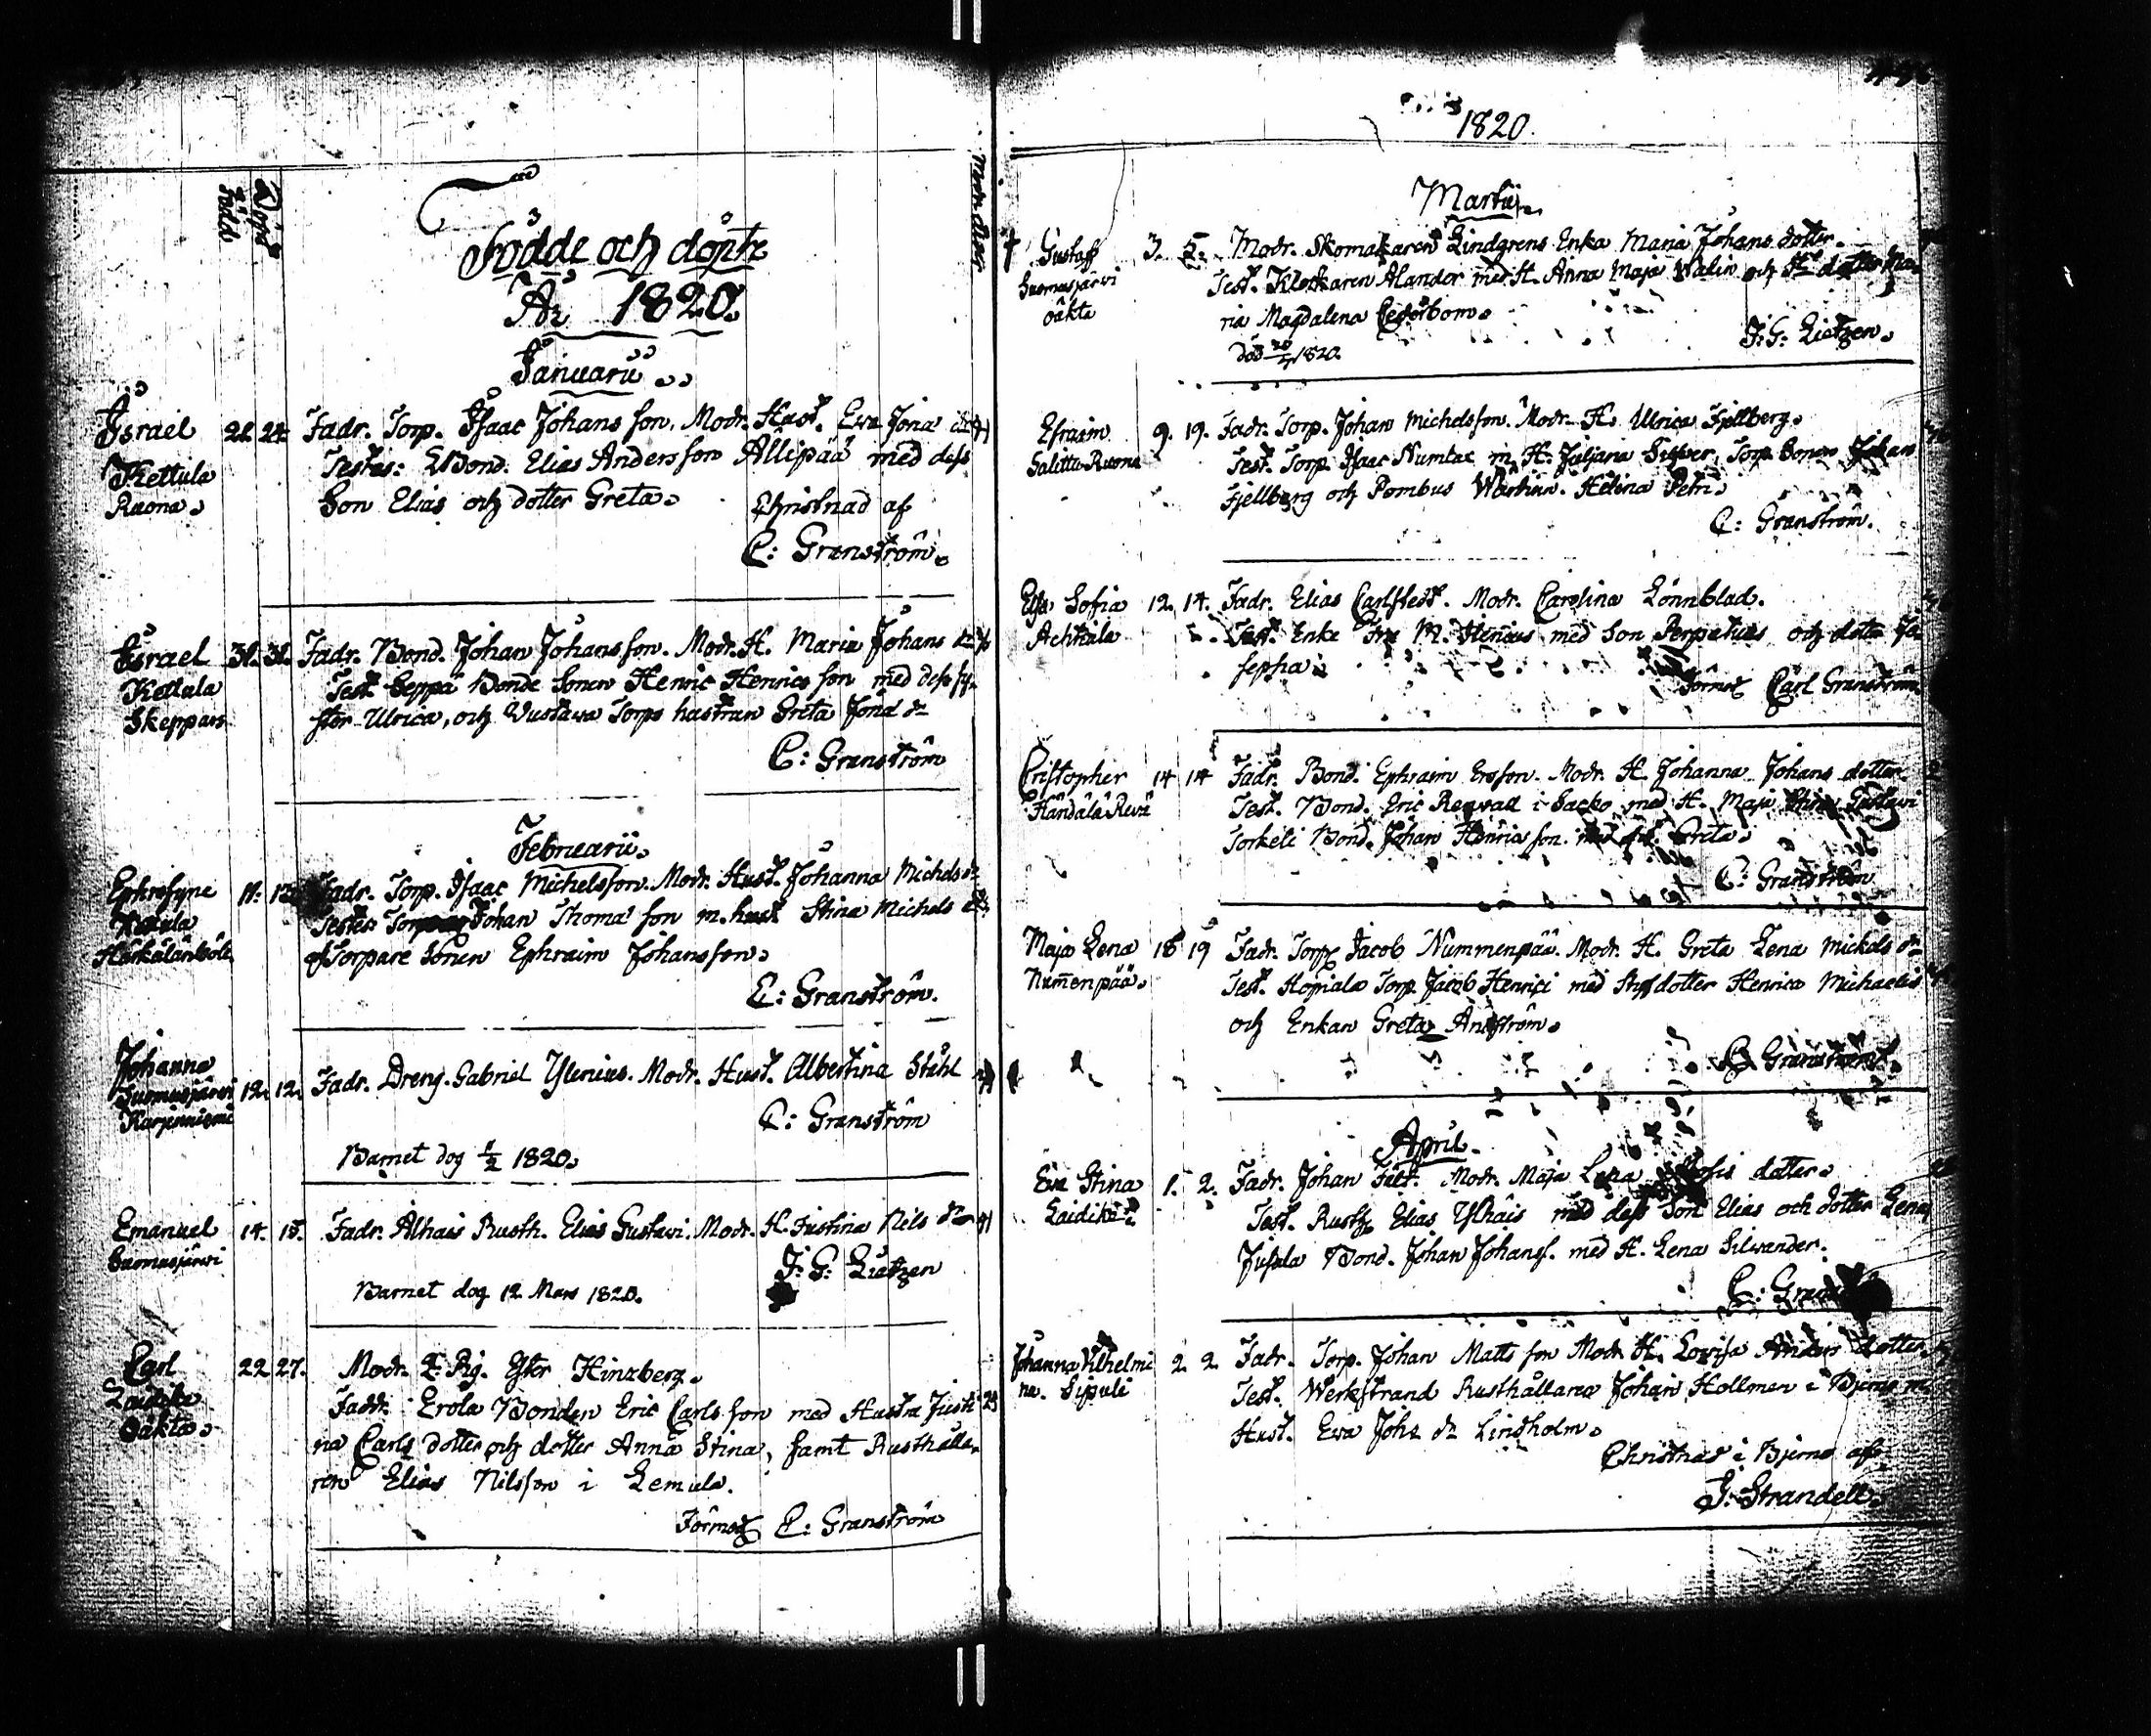 Född
Döpt
Modrens ålder
Födde och döpte
År 1820.
Januarii
Israel 22. 24. Fadr. Torp. Isaac Johansson. Modr. Hust. Eva Jona
Kettula Testes: Bond. Elias Andersson Allipää med dess
Ruona. Son Elias och dotter Greta. Christnad af
C: Granström.
Israel 31. 31. Fadr. Bond. Johan Johansson. Modr. H. Maria Johans dr
Kettula Test. Seppä Bonde Sonen Henric Henricsson med dess sy-
Skeppars ster Ulrica, och Torps hustrun Greta Jona dr
C: Granström
Februarii.
Ephrosyne 11. 13. Fadr. Torp. Isaac Michelsson. Modr. Hust. Johanna Michels dr
Testes Johan Thomasson m. hust Stina Michels dr
Härkälänböle Torpare Sonen Ephraim Johansson.
C: Granström.
Johanna
Suomusjärvi 12. 12. Fadr. Dreng. Gabriel Ylenius. Modr. Hust. Albertina Ståhl
Karjenniemi C: Granström
Barnet dog 1/2 1820.
Emanuel 14. 15. Fadr. Alhais Rusth. Elias Gustavi. Modr. H. Justina Nils dr 41
Suomusjärvi J: G: Lietzen
Barnet dog 12 Mars 1820.
Carl 22 27. Modr. Q. Pig. Ester Hinzberg.
Laidike Fadd: Erola Bonden Eric Carlsson med Hustru Justi- 23
Oäkta. na Carls dotter och dotter Anna Stina, samt Rusthålla-
ren Elias Nilsson i Lemula.
Förmod C: Granström
1820.
Martii.
† Gustaff 3. 5. Modr. Skomakaren Lindgrens Enka Maria Johans dotter.
Suomusjärvi Test. Klockaren Alander med H. Anna Maja Walin och dotter Ma-
oäkta ria Magdalena Cederbom.
J: G: Lietzen.
död 1820.
Efraim 9. 19. Fadr. Torp. Johan Michelsson. Modr. H. Ulrica Fjellberg.
Salittu Ruona Test. Torp. Isaac Numtae m. H. Juljana Silfver, Torp. Sonen Johan
Fjellberg och Helena Petri.
C: Granström.
Elsa Sofia 12. 14. Fadr. Elias Carlstedt. Modr. Carolina Lönnblad.
Achtiala Test. Enke Fru M. med Son Perpetuus och dotter Jo-
sepha
Förmod Carl Granström
Cristopher 14 14 Fadr. Bond. Ephraim Ersson. Modr. H. Johanna Johans dotter.
Test. Bond. Eric i Sacko med H. Maja Stina Gustavi
Torkeli Bond. Johan Henricsson. Greta.
C: Granström
Maja Lena 18 19 Fadr. Torp. Jacob Nummenpää. Modr. H. Greta Lena Mickels dr
Num̄enpää. Test. Torp. Jacob Henrici med Styfdotter Henrica Michaelis
och Enkan Greta
C: Granström.
April.
Eva Stina 1. 2. Fadr. Johan Fält. Modr. Maja Lena dotter.
Laidike Test. Rusth. Elias Ylhäis med dess Son Elias och dotter Lena,
Bond. Johan Johanss. med H. Lena Silvander.
C: Gran
Johanna Vilhelmi 2. 2. Fadr. Torp. Johan Matts son Modr. H. Lovisa Anders dotter.
na. Sipule Test. Werkstrand Rusthållaren Johan Hollmen i Bjerno m.
Hust. Eva Johs dr Lindholm.
Christnad i Bjerno af
J: Strandell.